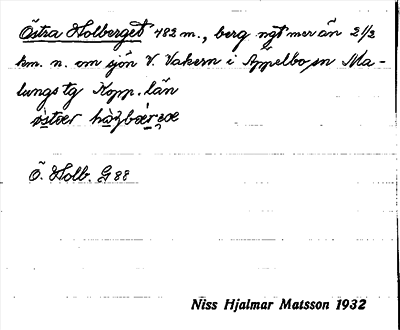 Östra Holberget 482 m., berg ngt mer än 2 1/2
km. n. om sjön V. Vakern i Äppelbo sn Ma-
lungs tg Kopp. län
Ö. Holb. G 88
Niss Hjalmar Matsson 1932